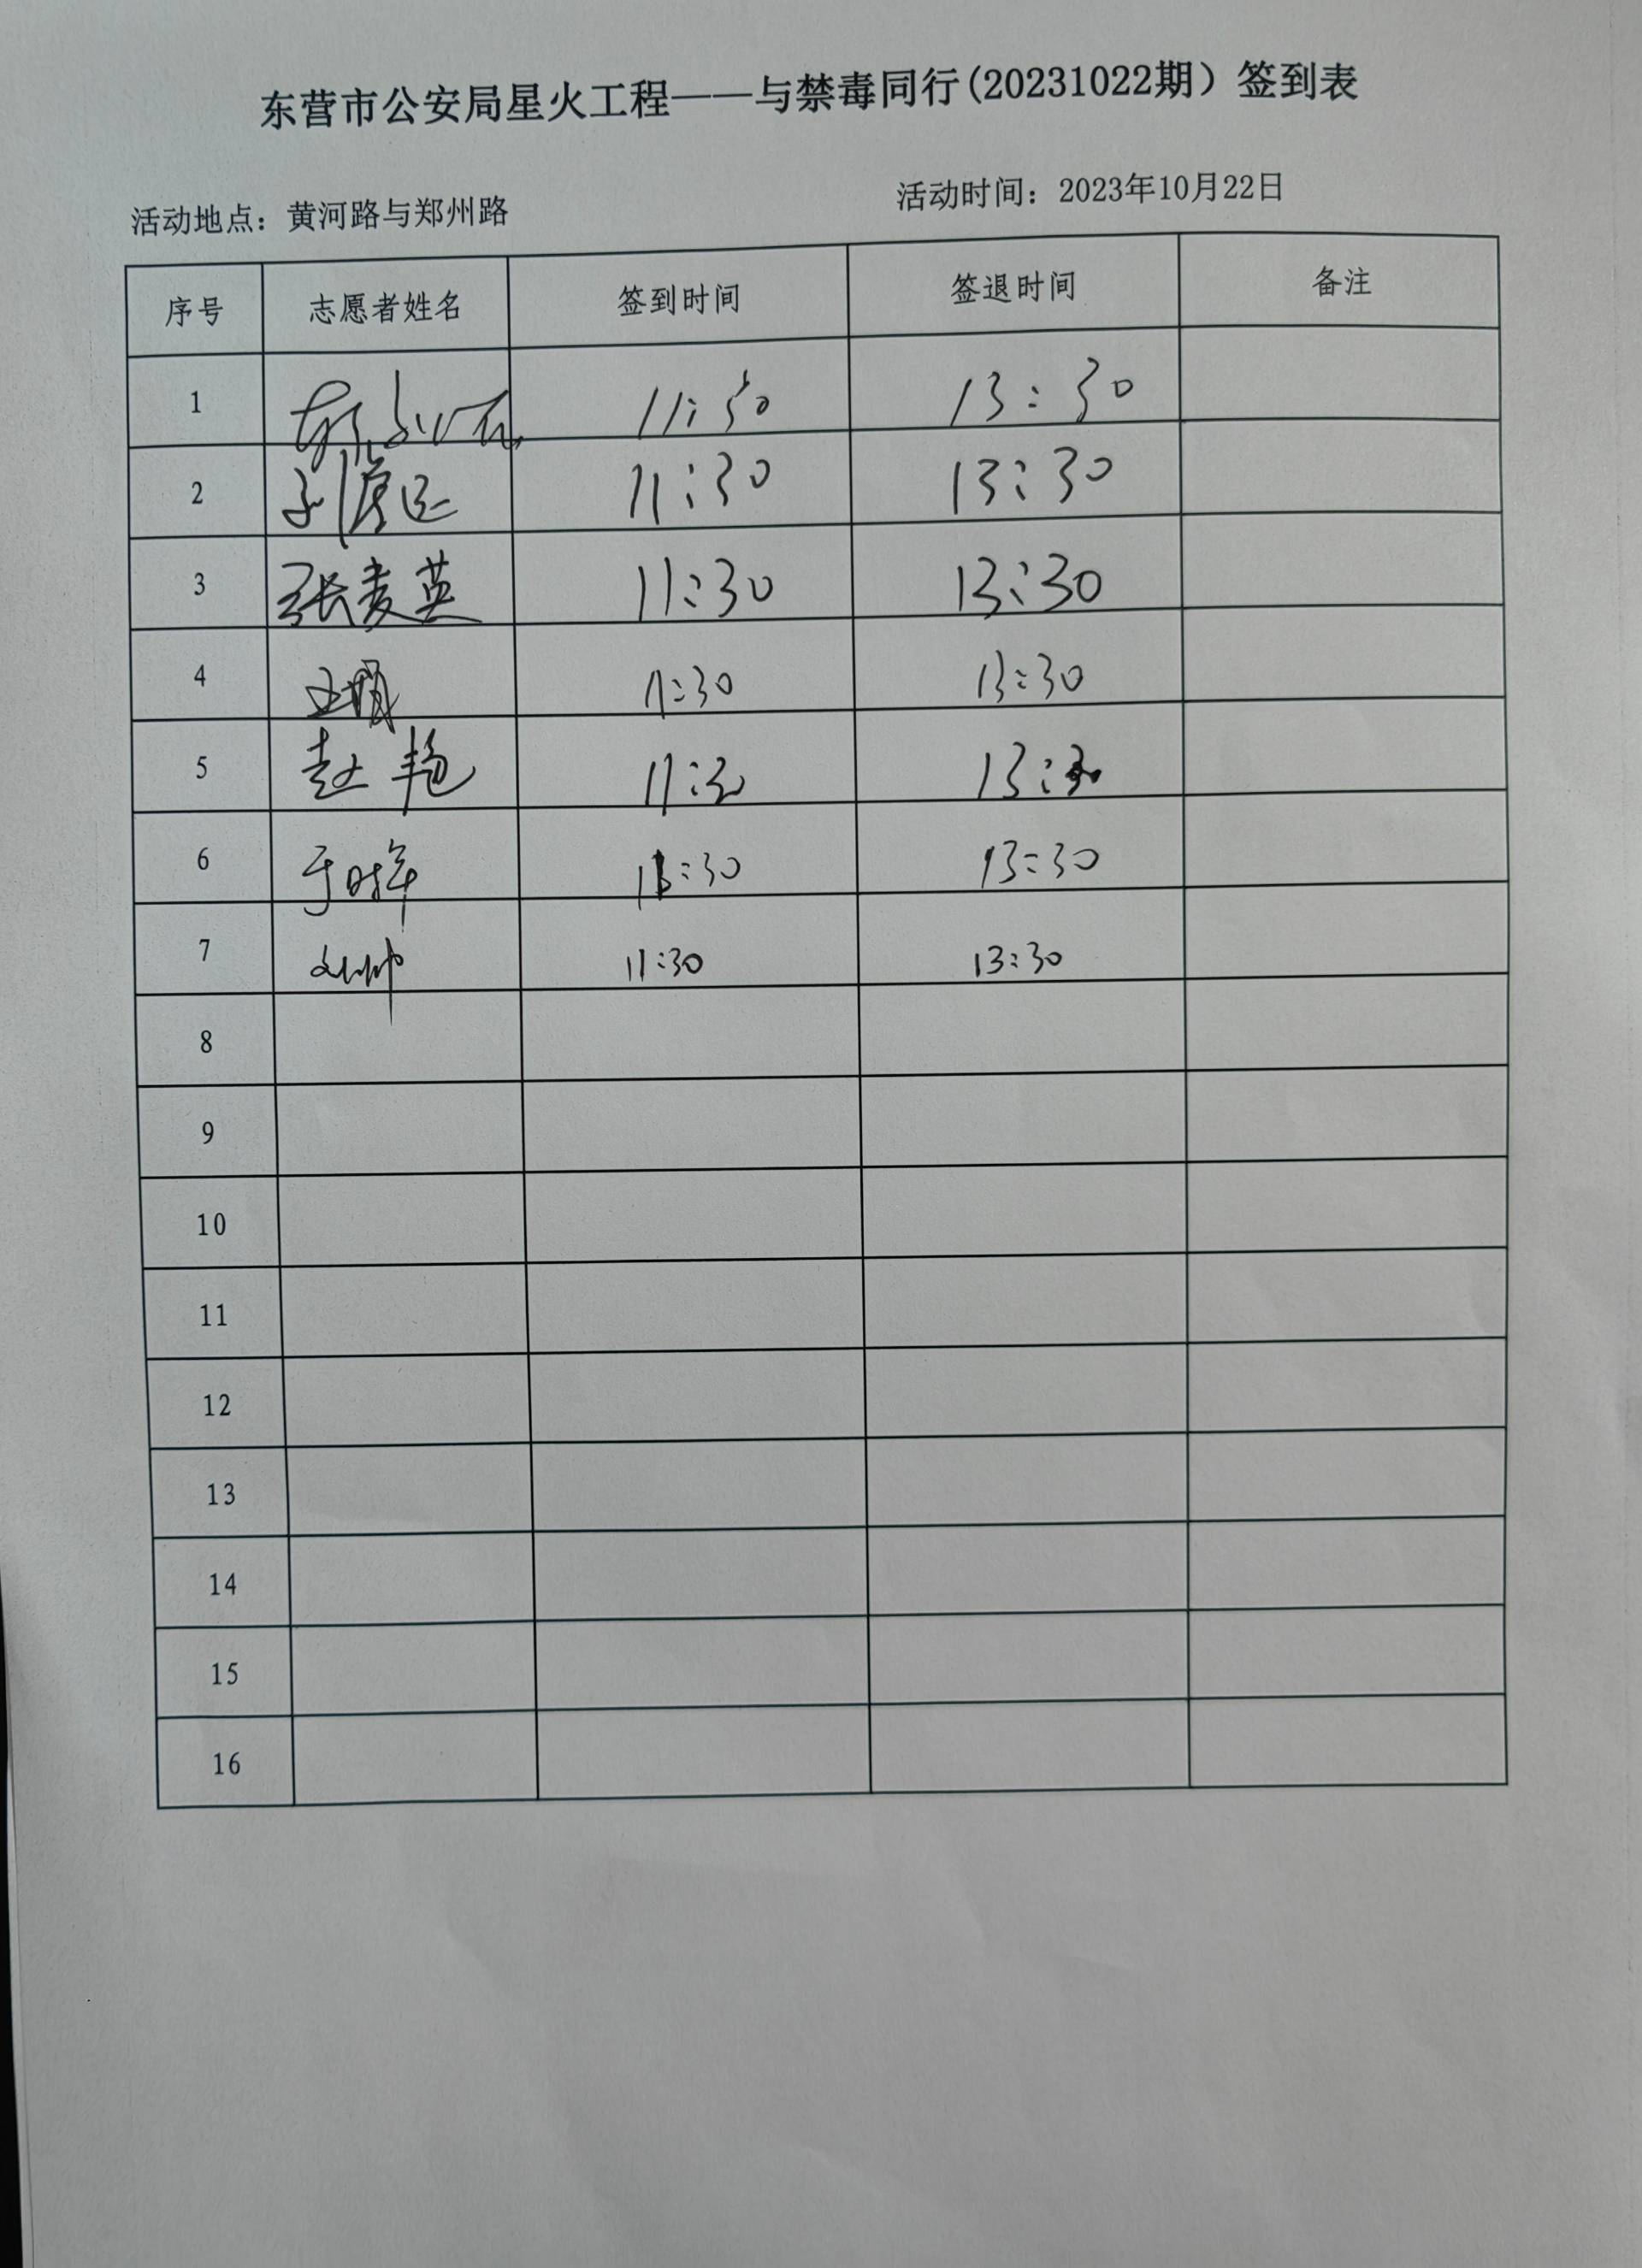 东营市公安局星火工程——与禁毒同行(20231022期）签到表
活动地点：黄河路与郑州路 活动时间：2023年10月22日
序号 志愿者姓名 签到时间 签退时间 备注
1 11:30 13:30
2 11:30 13:30
3 张麦英 11:30 13:30
4 11:30 13:30
5 赵艳 11:30 13:30
6 11:30 13:30
7 11:30 13:30
8
9
10
11
12
13
14
15
16